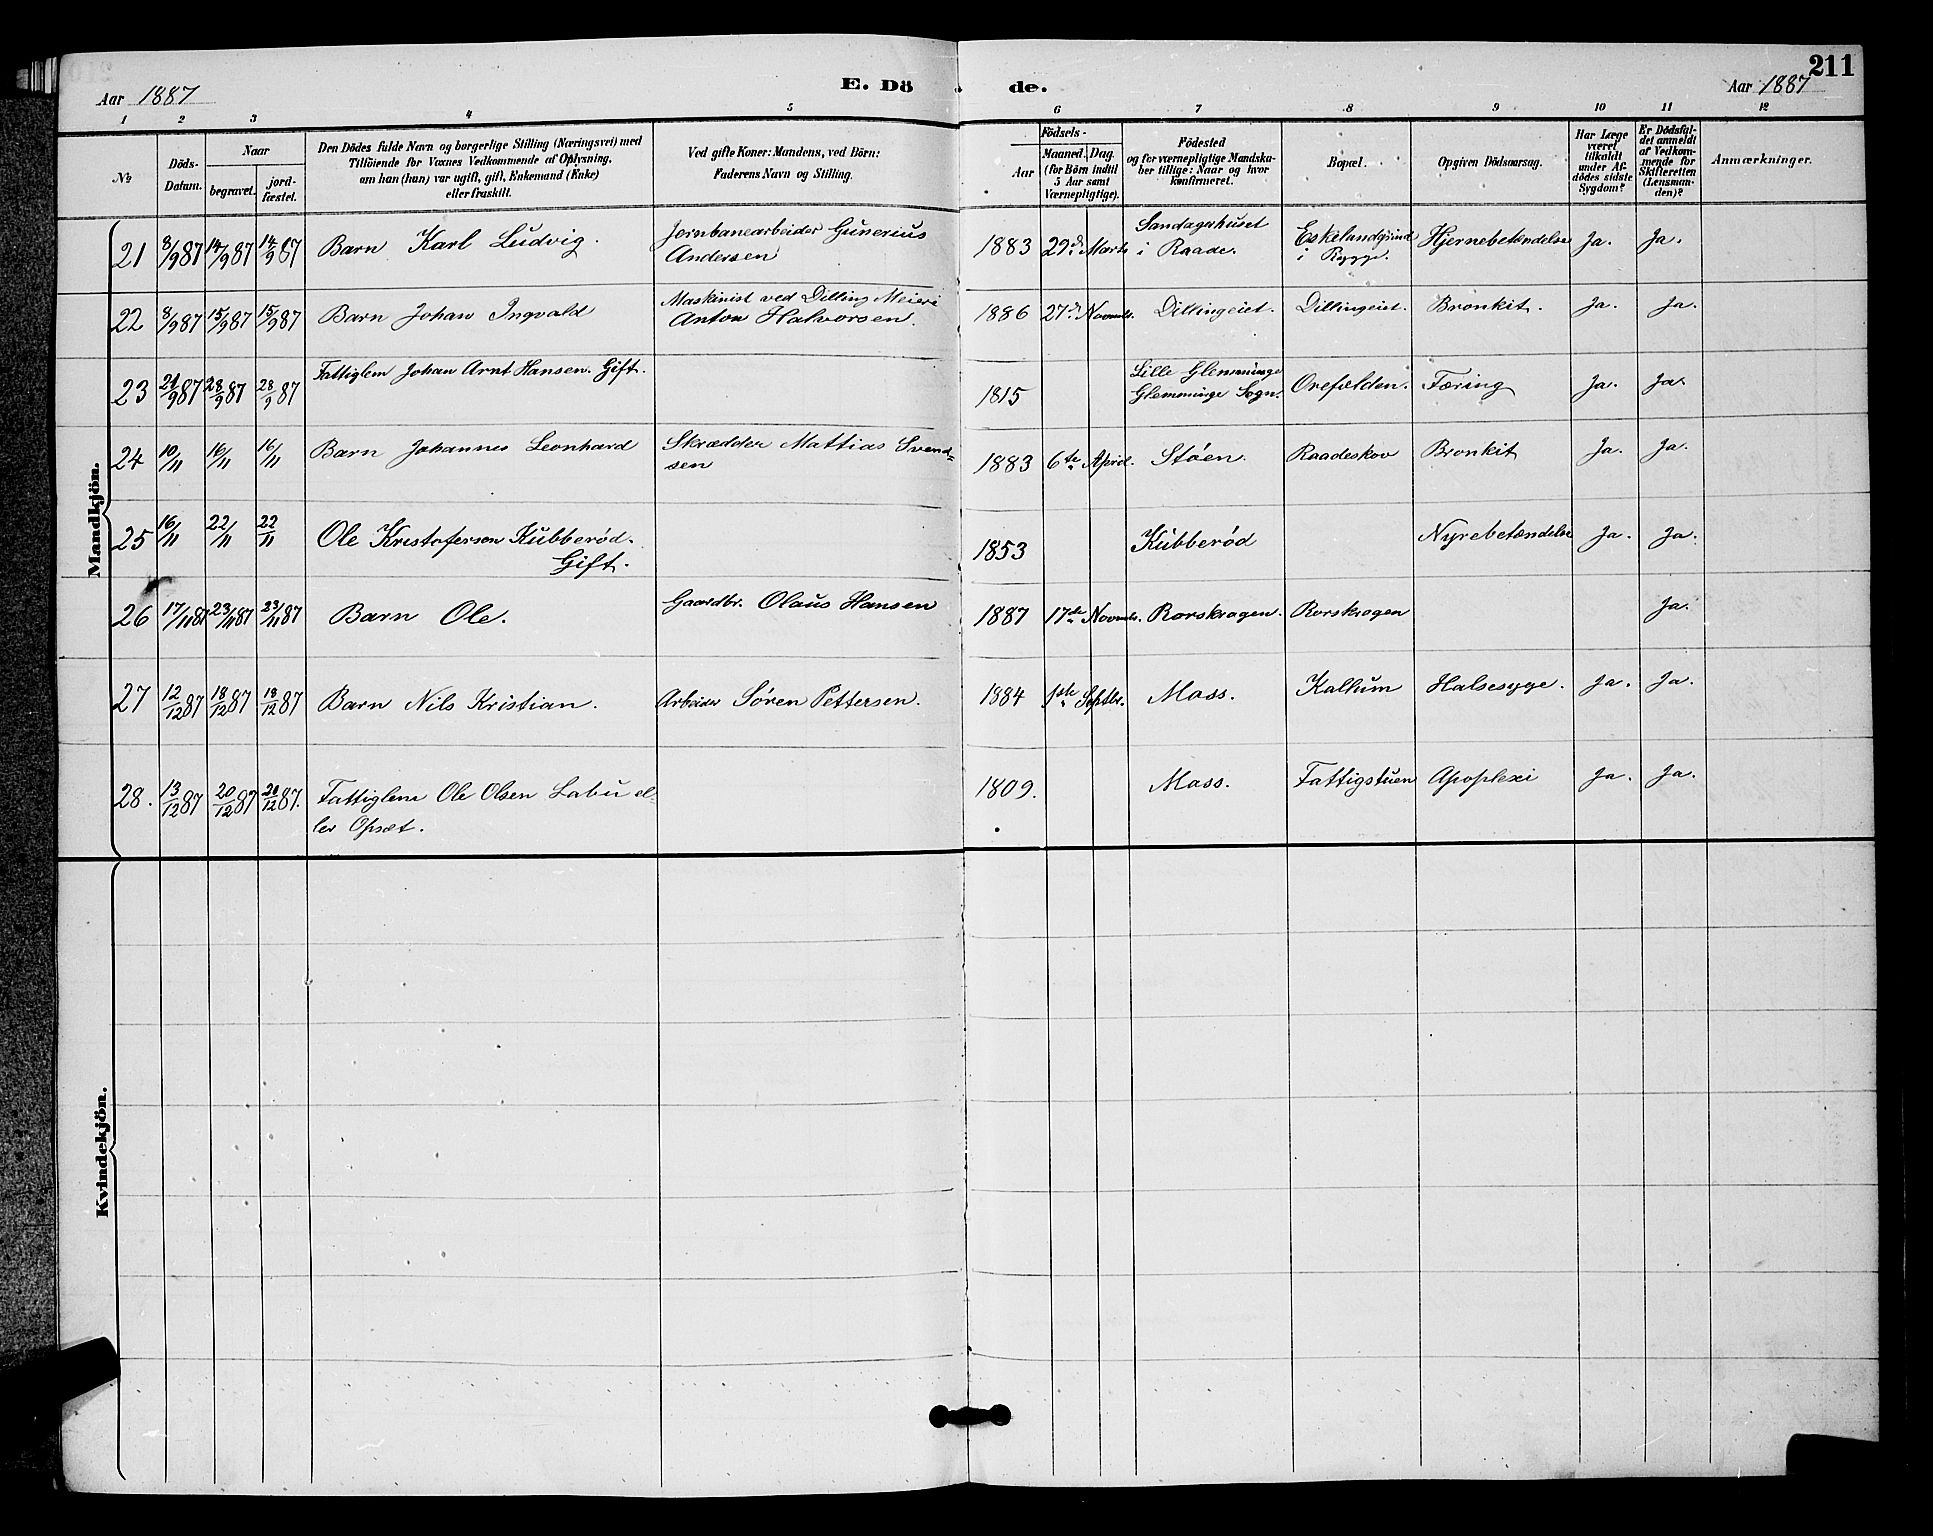 211
Aar 1887 E. Dö de. Aar 1887
1 2 3 4 5 6 7 8 9 10 11 12
№
Döds-
Datum.
Naar
begravet.
jord-
fæstet.
Den Dödes fulde Navn og borgerlige Stilling (Næringsvei) med
Tilföiende for Voxnes Vedkommende af Oplysning,
om han (hun) var ugift, gift, Enkemand (Enke)
eller fraskilt.
Ved gifte Koner: Mandens, ved Börn:
Faderens Navn og Stilling.
Födsels-
Aar
Maaned. Dag.
(for Börn indtil
5 Aar samt
Værnepligtige).
Födested
og for værnepligtige Mandska-
ber tillige: Naar og hvor
konfirmeret.
Bopæl.
Opgiven Dödsaarsag.
Har Læge
været
tilkaldt
under Af-
dödes sidste
Sygdom?
Er Dödsfal-
det anmeldt
af Vedkom-
mende for
Skifteretten
(Lensman-
den)?
Anmærkninger.
Mandkjön.
21 8/9 87 14/9 87 14/9 87 Barn Karl Ludvig. Jernbanearbeider Gunerius
Andersen 1883 29de Marts Sandagerhuset
i Raade. Eskelandgrind
i Rygge. Hjernebetændelse Ja. Ja.
22 8/9 87 15/9 87 15/9 87 Barn Johan Ingvald Maskinist ved Dilling Meieri
Anton Halvorsen. 1886 27de Novmbr. Dillingeiet. Dillingeiet. Bronkit. Ja. Ja.
23 21/9 87 28/9 87 28/9 87 Fattiglem Johan Arnt Hansen. Gift. 1815 Lille Glemminge
Glemminge Sogn. Orefælden. Tæring Ja. Ja.
24 10/11 16/11 16/11 Barn Johannes Leonhard Skrædder Mattias Svend=
sen 1883 6te April. Støen. Raadeskov Bronkit Ja. Ja.
25 16/11 22/11 22/11 Ole Kristofersen Kubberød.
Gift. 1853 Kubberød Nyrebetændelse Ja. Ja.
26 17/11 87 23/11 87 23/11 87 Barn Ole. Gaardbr. Olaus Hansen 1887 17de Novmbr. Rorskragen. Rorskragen Ja.
27 12/12 87 18/12 87 18/12 87 Barn Nils Kristian. Arbeider Søren Pettersen. 1884 1ste Septbr. Moss. Kallum Halsesyge. Ja. Ja.
28. 13/12 87 20/12 87 20/12 87. Fattiglem Ole Olsen Labu el-
ler Opsæt. 1809. Moss. Fattigstuen Apoplexi Ja. Ja.
Kvindekjön.